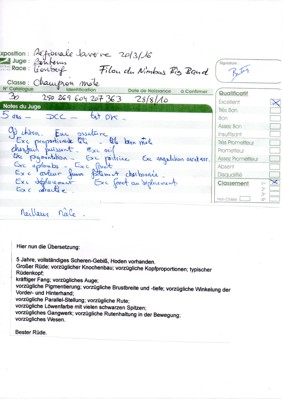 Exposition : Régionale Savoie 20/3/16
Juge :
Race : Filou du Nimbus Big Band
Signature :
Classe : Champion mâle
N° Catalogue N° Identification Date de Naissance à Confirmer
30 250 269 604 207 363 28/8/10
Notes du Juge
5 ans - DCC - test OK.
Gd chien. Exc ossature
Exc proportions tête
chanfrein puissant. Exc œil
Exc pigmentation Exc poitrine Exc angulations
Exc
Exc couleur fauve charbonnée.
Exc déplacement Exc fouet au déplacement
Exc caractère.
Meilleur Mâle.
Qualificatif
Excellent X
Très Bon
Bon
Assez Bon
Insuffisant
Très Prometteur
Prometteur
Assez Prometteur
Absent
Disqualifié
Classement
Non Classé
Hier nun die Übersetzung:
5 Jahre, vollständiges Scheren-Gebiß, Hoden vorhanden.
Großer Rüde; vorzüglicher Knochenbau; vorzügliche Kopfproportionen; typischer
Rüdenkopf;
kräftiger Fang; vorzügliches Auge;
vorzügliche Pigmentierung; vorzügliche Brustbreite und -tiefe; vorzügliche Winkelung der
Vorder- und Hinterhand;
vorzügliche Parallel-Stellung; vorzügliche Rute;
vorzügliche Löwenfarbe mit vielen schwarzen Spitzen;
vorzügliches Gangwerk; vorzügliche Rutenhaltung in der Bewegung;
vorzügliches Wesen.
Bester Rüde.